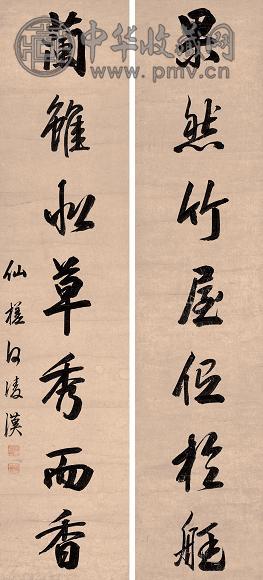 中华收藏网
www.pmv.cn
果然竹屋低於艇
蘭雖似草秀而香
仙槎何凌漢